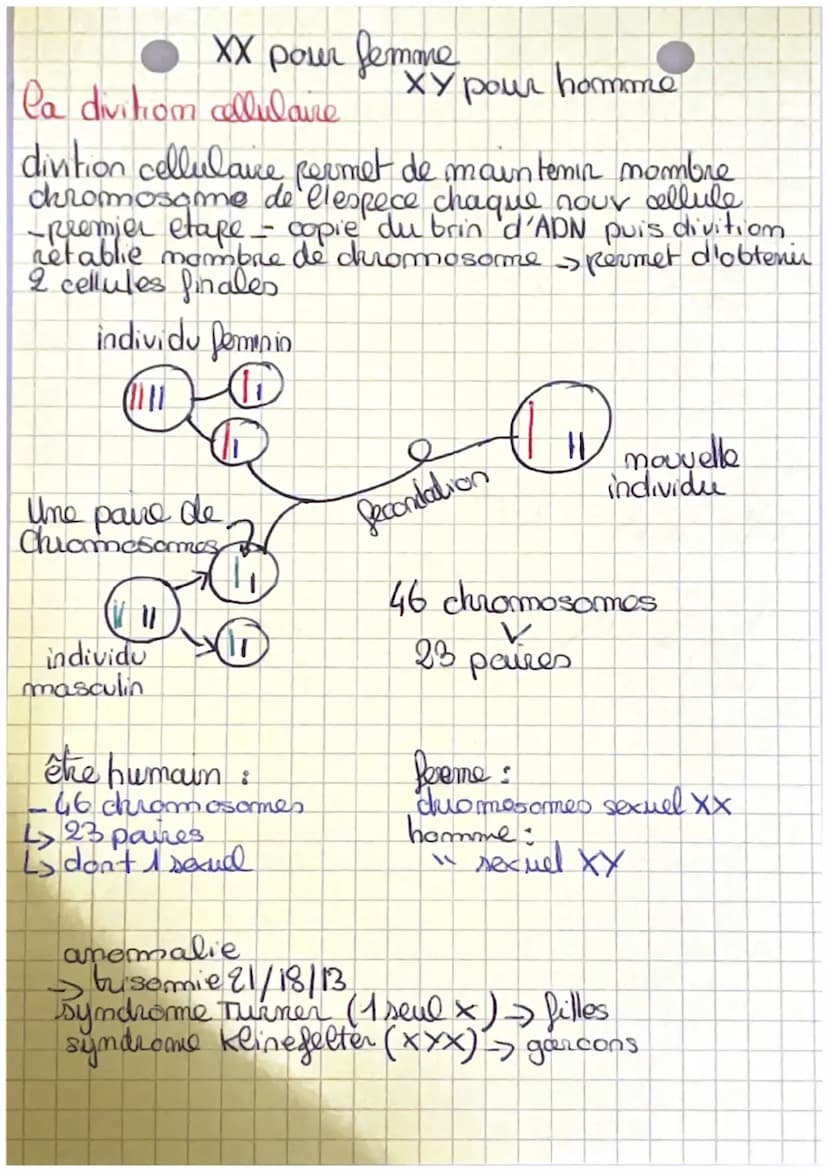 XX pour femme
XY pour homme
la divition cellulaire
divition cellulaire permet de maintenir nombre
chromosome de l'espece chaque nouv cellule
- premier etape - copie du brin d'ADN puis divition
rétablie nombre de chromosome → permet d'obtenir
2 cellules finales
individu feminin
nouvelle
individu
fecondation
Une paire de
Chromosomes
46 chromosomes
23 paires
individu
masculin
être humain :
- 46 chromosomes
↳ 23 paires
↳ dont 1 sexuel
feeme :
chromosomes sexuel XX
homme :
" sexuel XY
anomalie
→ trisomie 21/18/13
syndrome Turner (1 seul x) → filles
syndrome Klinefelter (XYX) → garcons